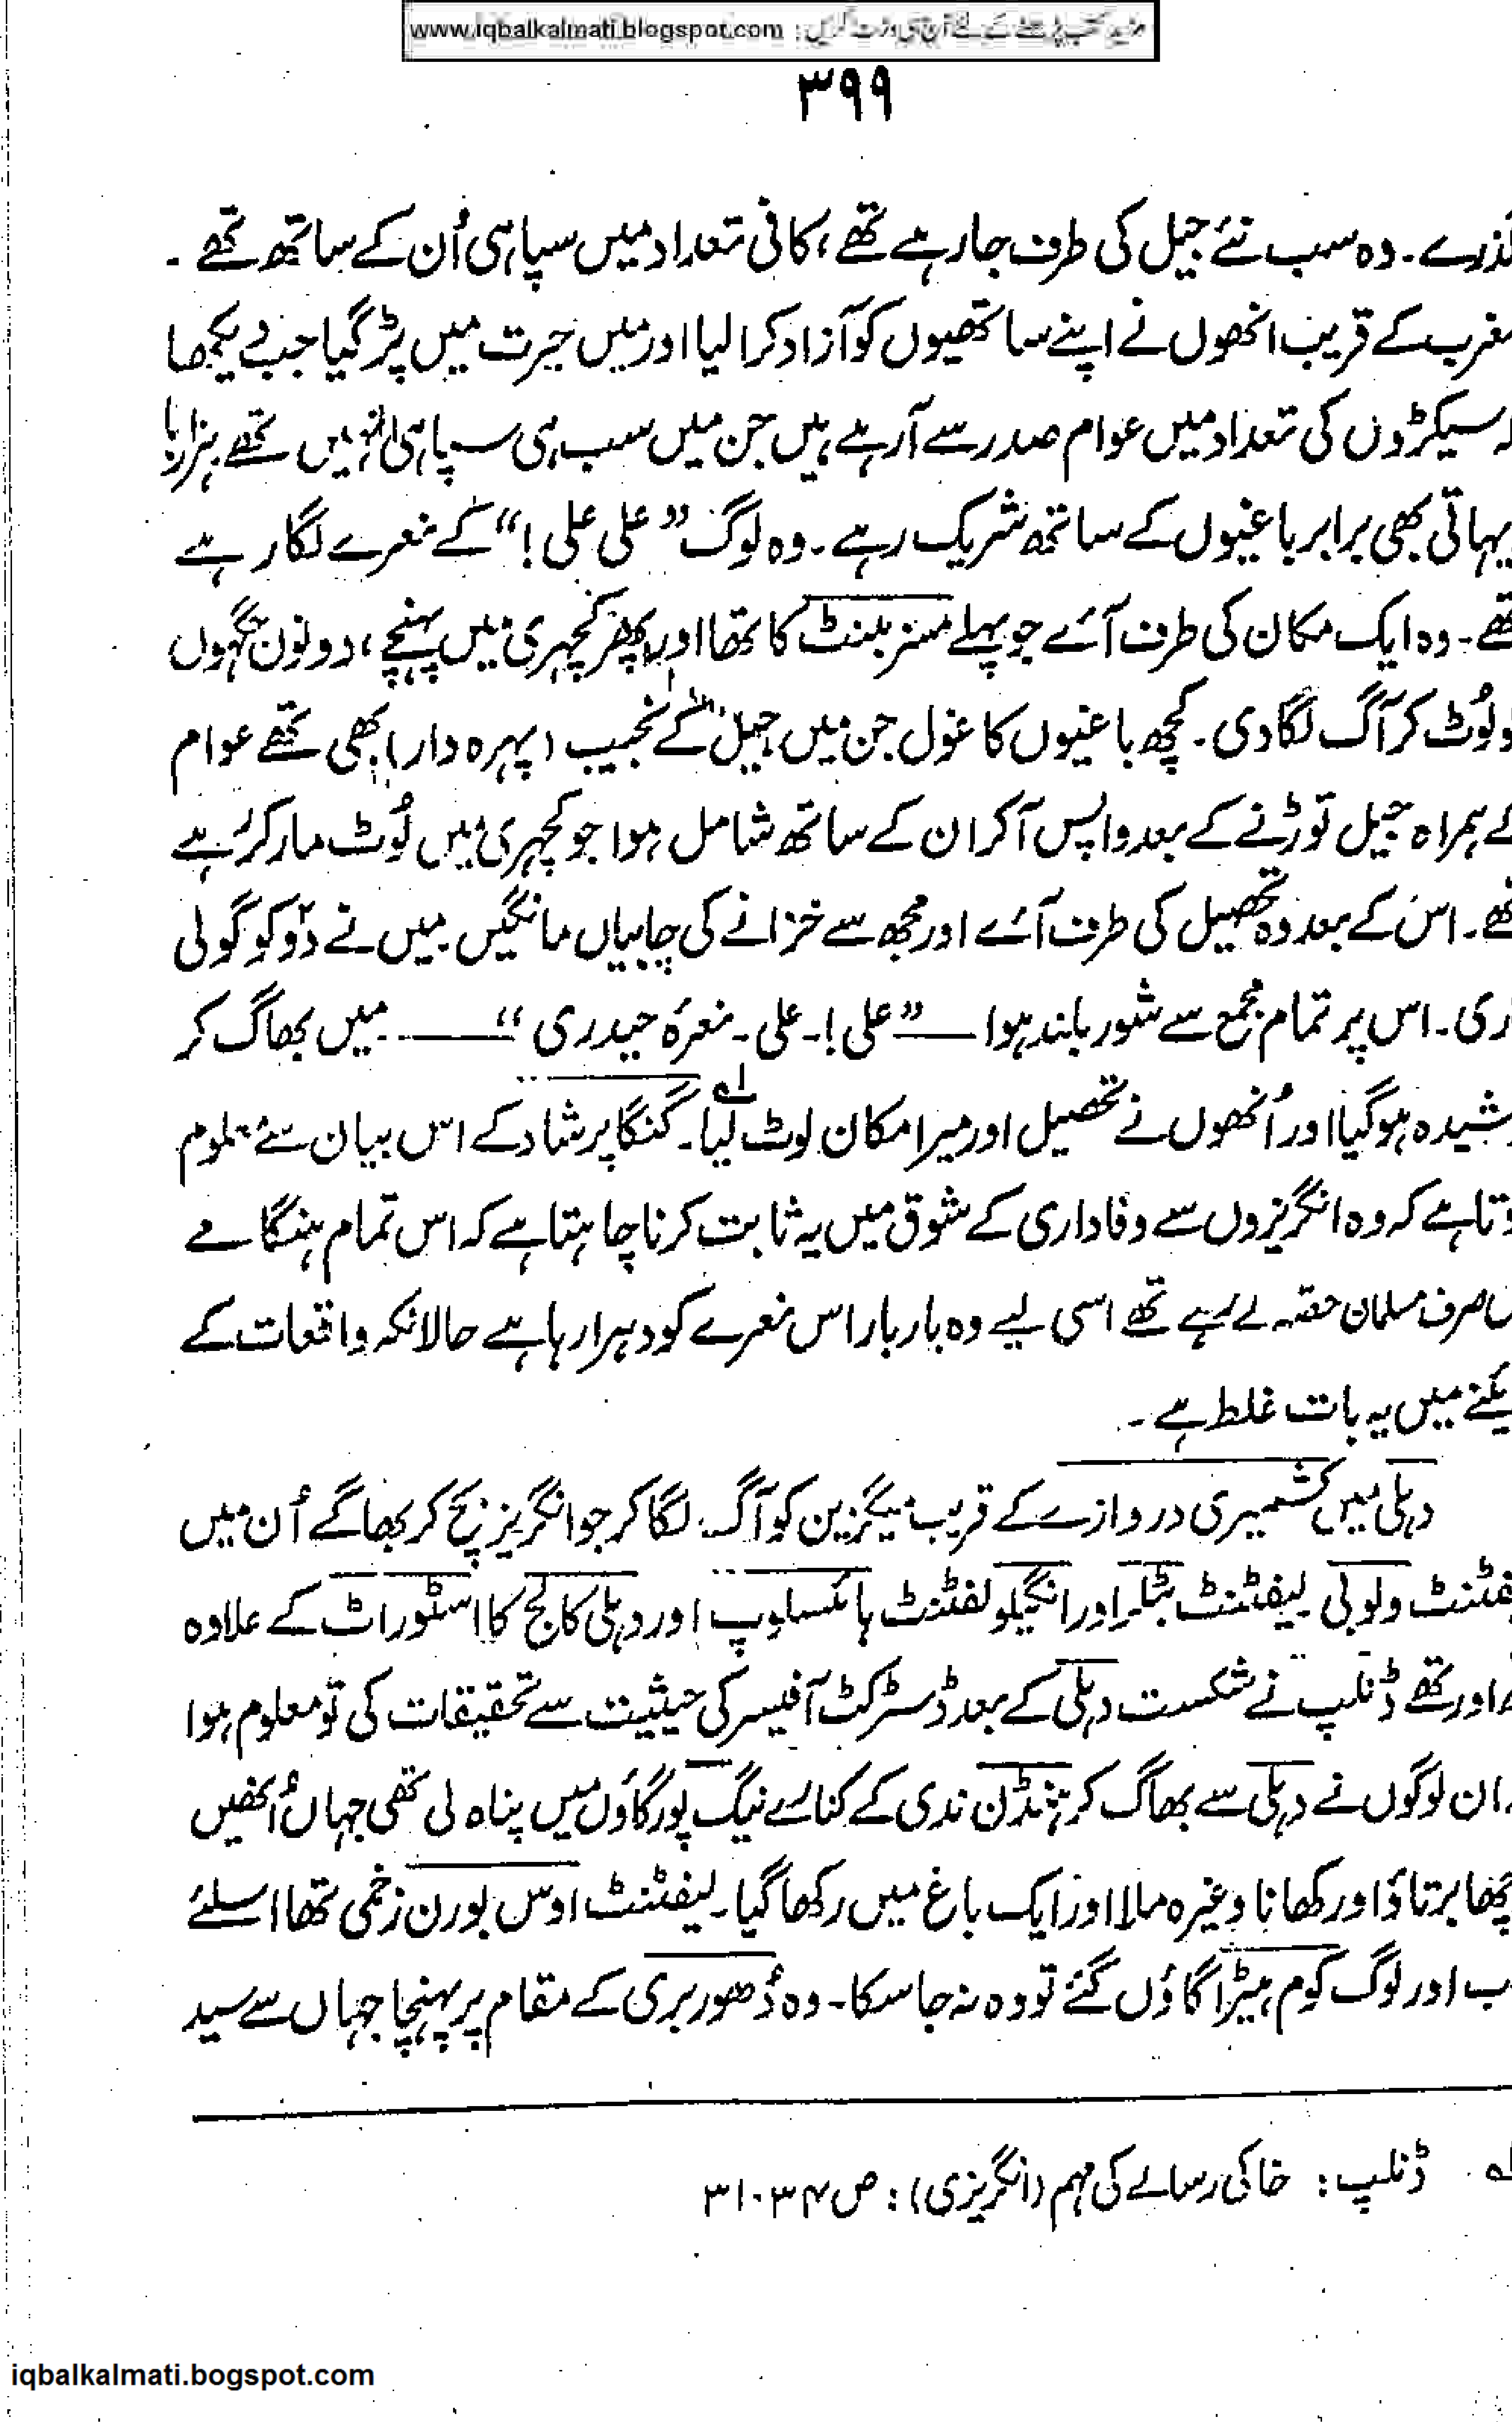 مزید کتب پڑھنے کے لئے آج ہی وزٹ کریں : www.iqbalkalmati.blogspot.com
۳۹۹
گذرے۔ وہ سب نئے جیل کی طرف جا رہے تھے، کافی تعداد میں سپاہی اُن کے ساتھ تھے۔
مغرب کے قریب انھوں نے اپنے ساتھیوں کو آزاد کرا لیا اور میں حیرت میں پڑ گیا جب دیکھا
سیکڑوں کی تعداد میں عوام صدر سے آ رہے ہیں جن میں سب ہی سپاہی نہیں تھے ہزارہا
یہاتی بھی برابر باغیوں کے ساتھ شریک رہے۔ وہ لوگ ”علی علی!“ کے نعرے لگا رہے
تھے۔ وہ ایک مکان کی طرف آئے جو پہلے مسز بلنٹ کا تھا اور پھر کچہری میں پہنچے، دونوں جگہوں
و لُوٹ کر آگ لگا دی۔ کچھ باغیوں کا غول جن میں جیل کے نجیب (پہرہ دار) بھی تھے عوام
کے ہمراہ جیل توڑنے کے بعد واپس آ کر ان کے ساتھ شامل ہوا جو کچہری میں لُوٹ مار کر رہے
تھے۔ اس کے بعد وہ تحصیل کی طرف آئے اور مجھ سے خزانے کی چابیاں مانگیں میں نے دو کو گولی
ری۔ اس پر تمام مجمع سے شور بلند ہوا — ”علی!۔علی۔ نعرۂ حیدری“ — میں بھاگ کر
شیدہ ہو گیا اور اُنھوں نے تحصیل اور میرا مکان لوٹ لیا۔ لہ گنگا پرشاد کے اس بیان سے معلوم
وتا ہے کہ وہ انگریزوں سے وفاداری کے شوق میں یہ ثابت کرنا چاہتا ہے کہ اس تمام ہنگامے
ں صرف مسلمان حصّہ لے رہے تھے اسی لیے وہ بار بار اس نعرے کو دہرا رہا ہے حالانکہ واقعات کے
یکھنے میں یہ بات غلط ہے۔
دہلی میں کشمیری دروازے کے قریب میگزین کو آگ لگا کر جو انگریز بچ کر بھاگے اُن میں
فٹنٹ ولوبی لیفٹننٹ بٹلر اور انگیلو لفٹنٹ ہائسلوپ اور دہلی کالج کا اسٹوراٹ کے علاوہ
اور تھے ڈنلپ نے شکست دہلی کے بعد ڈسٹرکٹ آفیسر کی حیثیت سے تحقیقات کی تو معلوم ہوا
ان لوگوں نے دہلی سے بھاگ کر ہنڈن ندی کے کنارے نیگ پور گاؤں میں پناہ لی تھی جہاں اُنھیں
چھا برتاؤ اور کھانا وغیرہ ملا اور ایک باغ میں رکھا گیا۔ لیفٹننٹ اوس بورن زخمی تھا اسلئے
ب اور لوگ کوم ہیڑا گاؤں گئے تو وہ نہ جا سکا۔ وہ دُھوربری کے مقام پر پہنچا جہاں سے سید
لہ ڈنلپ: خاکی رسالے کی مہم (انگریزی): ص ۳۴-۳۱
iqbalkalmati.bogspot.com